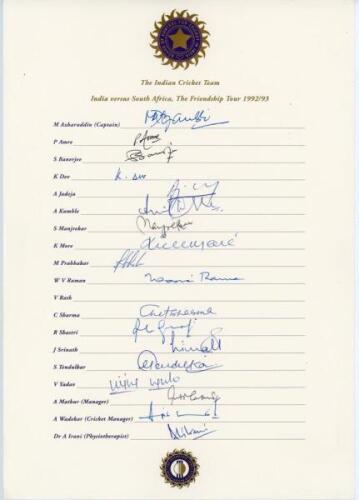 The Indian Cricket Team
India versus South Africa, The Friendship Tour 1992/93
M Azharuddin (Captain)
P Amre P Amre
S Banerjee
K Dev K. Dev
A Jadeja
A Kumble
S Manjrekar Manjrekar
K More
M Prabhakar
W V Raman
V Rath
C Sharma Chetansharma
R Shastri
J Srinath
S Tendulkar
V Yadav
A Mathur (Manager)
A Wadekar (Cricket Manager)
Dr A Irani (Physiotherapist)